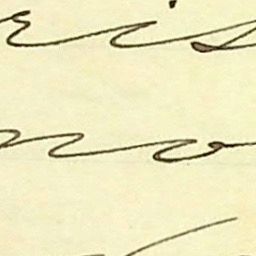 ris
no